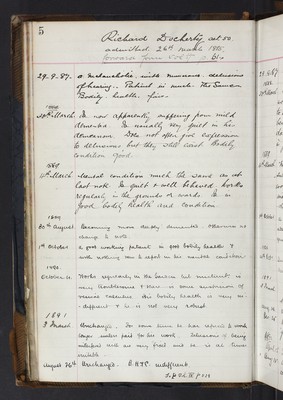 5
Richard Docherty, aet 50.
admitted 26th March 1885.
forward from Vol
29.9.87. a melancholic, with numerous delusions
of hearing. Patient in much the same
Bodily health fair.
1888
30th March Is now apparently suffering from mild
dementia. Is usually very quiet in his
demeanour. Does not often give expression
to delusions, but they still exist. Bodily
condition good.
1889
March Mental condition much the same as at
last note. Is quiet & well behaved, works
regularly in the grounds & wards. Is in
good bodily health and condition.
30th August Becoming more deeply demented. Otherwise no
change to note.
1st October a good working patient in good bodily health &
with nothing new to report in his mental condition
1890
October Works regularly in the Garden but
very troublesome &
various
different & he is not very robust.
1891
3 March Unchanged. For some time he has refused to work
longer unless paid for his work. Delusions of being
interfered with are very fixed and he is at times
irritable.
August 26th Unchanged. B.H.&C. indifferent